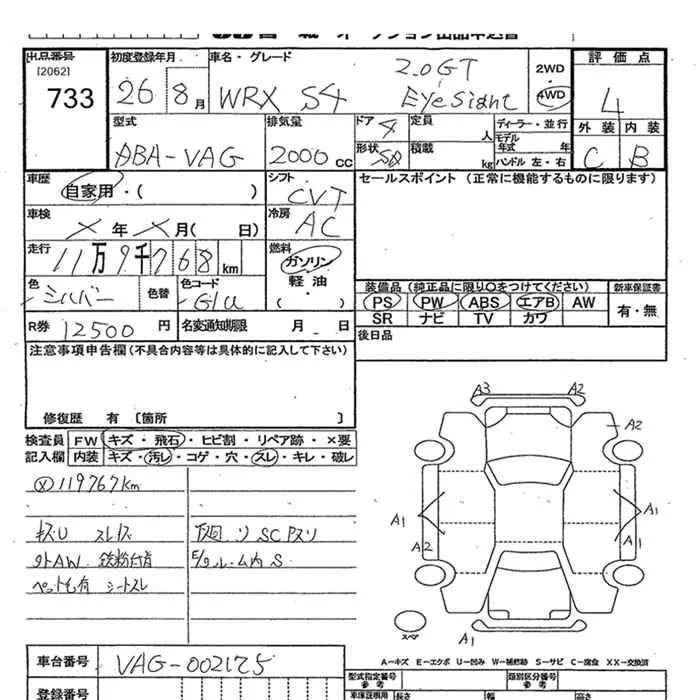 出品番号 [2062] 733
初度登録年月 26 8月
車名・グレード WRX S4 2.0GT EyeSight
2WD 4WD
評価点 4
外装 内装
C B
型式 DBA-VAG
排気量 2000cc
ドア 4
定員 人
形状 SD
積載 kg
ディーラー・並行
モデル年式 年
ハンドル 左・右
車歴 自家用・( )
シフト CVT
セールスポイント (正常に機能するものに限ります)
車検 X年X月( 日)
冷房 AC
走行 11万9千768km
燃料 ガソリン
軽油
( )
色 シルバー 色替
色コード G1U
装備品 (純正品に限り○をつけてください)
新車保証書
PS PW ABS エアB AW
有・無
SR ナビ TV カワ
R券 12500円
名変通知期限 月 日
後日品
注意事項申告欄(不具合内容等は具体的に記入して下さい)
修復歴 有 [箇所 ]
検査員 記入欄
FW キズ・飛石・ヒビ割・リペア跡・×要
内装 キズ・汚レ・コゲ・穴・スレ・キレ・破レ
119767km
キズU
外AW 鉄粉付着
E/gルーム内S
ペット毛有 シートスレ
A3 A2
A2
A1 A1
A2 A1
スペア
A1
A-キズ E-エクボ U-凹み W-補修跡 S-サビ C-腐食 XX-交換済
車台番号 VAG-002175
型式指定番号 参考
類別区分番号 参考
登録番号
車庫証明用 長さ 幅 高さ